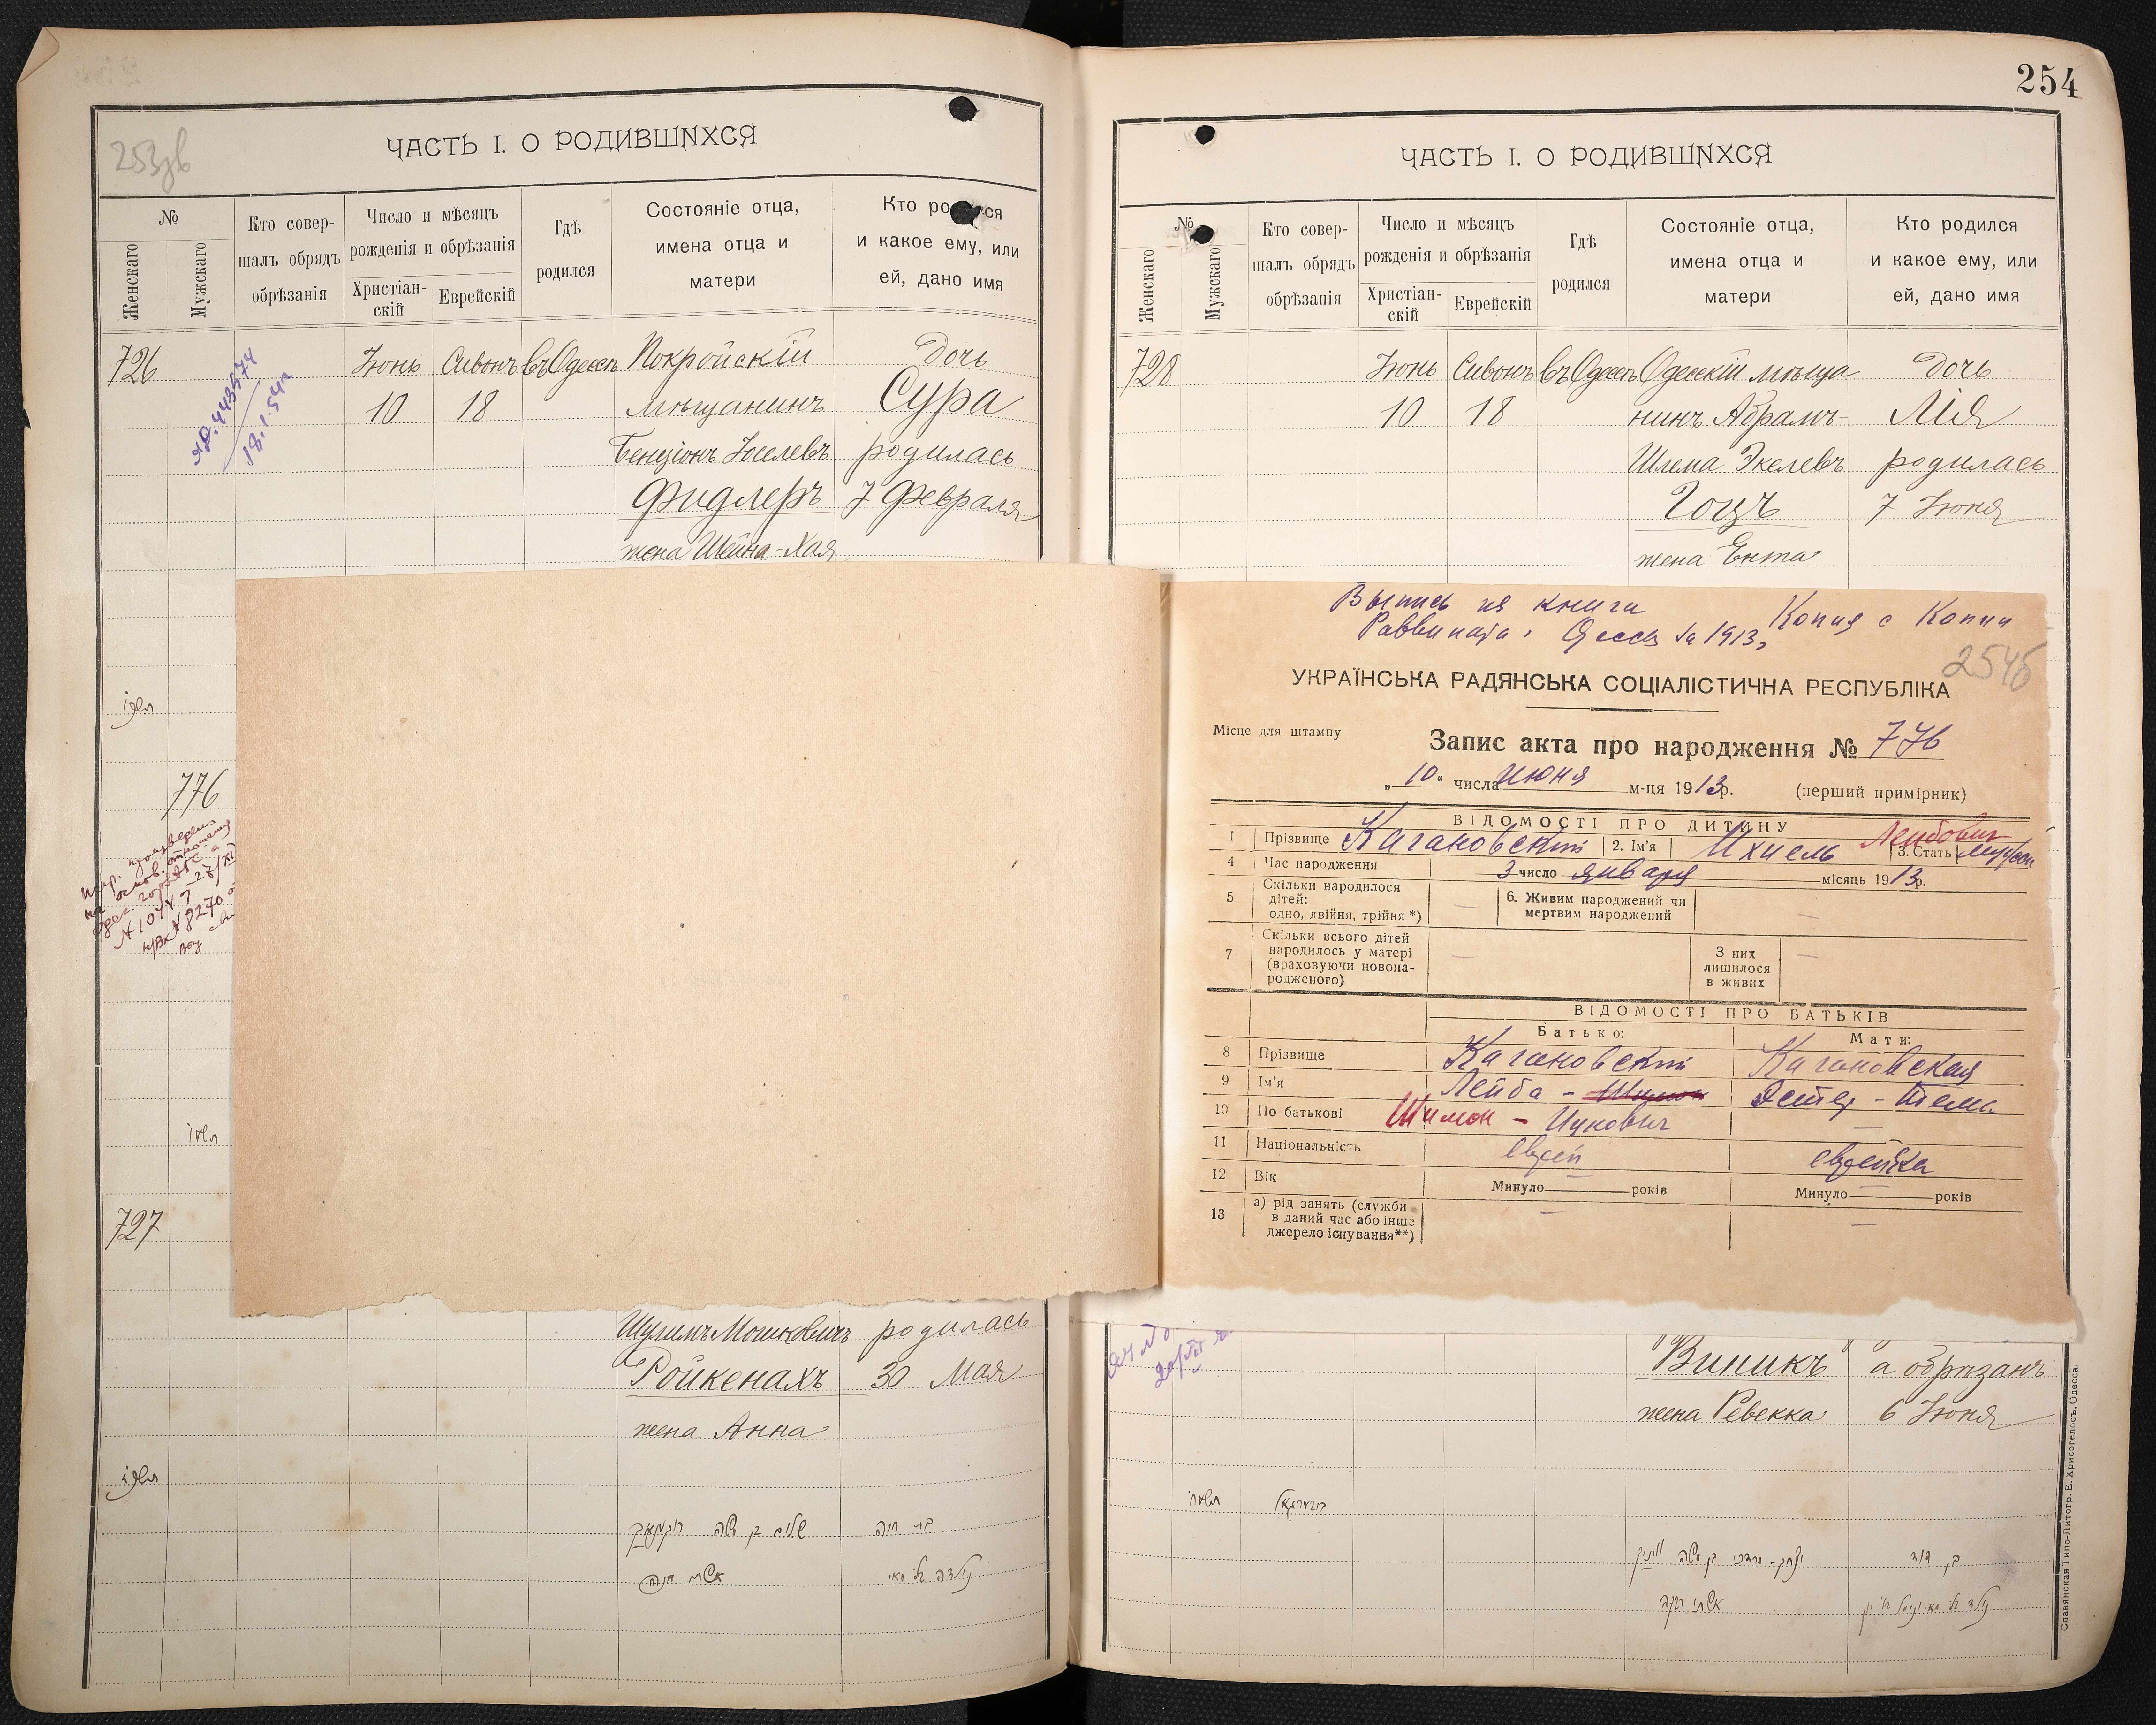 253зв
ЧАСТЬ I. О РОДИВШИХСЯ
№
Женскаго
Мужскаго
Кто совер-
шалъ обрядъ
обрѣзанія
Число и мѣсяцъ
рожденія и обрѣзанія
Христіан-
скій
Еврейскій
Гдѣ
родился
Состояніе отца,
имена отца и
матери
Кто ро ся
и какое ему, или
ей, дано имя
726 Іюнь Сивонъ въ Одессѣ Покройскій дочь
10 18 мѣщанинъ Сура
Бенціонъ Іоселевъ родилась
Фидлеръ 7 Февраля
жена Шейна-Хая
443574
18.1.54г
776
727
Шулимъ Мошковичъ родилась
Ройкенахъ 30 Мая
жена Анна
254
ЧАСТЬ I. О РОДИВШИХСЯ
№
Женскаго
Мужскаго
Кто совер-
шалъ обрядъ
обрѣзанія
Число и мѣсяцъ
рожденія и обрѣзанія
Христіан-
скій
Еврейскій
Гдѣ
родился
Состояніе отца,
имена отца и
матери
Кто родился
и какое ему, или
ей, дано имя
728 Іюнь Сивонъ въ Одессѣ Одесскій мѣща дочь
10 18 нинъ Абрамъ- Лія
Шлема Экелевъ родилась
Гоцъ 7 Іюня
жена Ента
Выпись из книги
Раввината г. Одессы за 1913г
Копия с Копии
254б
УКРАЇНСЬКА РАДЯНСЬКА СОЦІАЛІСТИЧНА РЕСПУБЛІКА
Місце для штампу
Запис акта про народження № 776
„10“ числа июня м-ця 1913р. (перший примірник)
ВІДОМОСТІ ПРО ДИТИНУ
1 Прізвище Кагановский 2. Ім'я Ихиель Лейбович 3. Стать мужской
4 Час народження 3 число января місяць 1913р.
5 Скільки народилося
дітей:
одно, двійня, трійня *) —
6. Живим народжений чи
мертвим народжений —
7 Скільки всього дітей
народилось у матері
(враховуючи новона-
родженого) —
З них
лишилося
в живих —
ВІДОМОСТІ ПРО БАТЬКІВ
Батько: Мати:
8 Прізвище Кагановский Кагановская
9 Ім'я Лейба - Шимон Эстер - Тема
10 По батькові Шимон - Ицкович —
11 Національність еврей еврейка
12 Вік Минуло — років Минуло — років
13 а) рід занять (служби
в даний час або інше
джерело існування**) — —
Виникъ а обрѣзанъ
жена Ревекка 6 Іюня
Славянская Типо-Литогр. Е. Хрисогелосъ, Одесса.